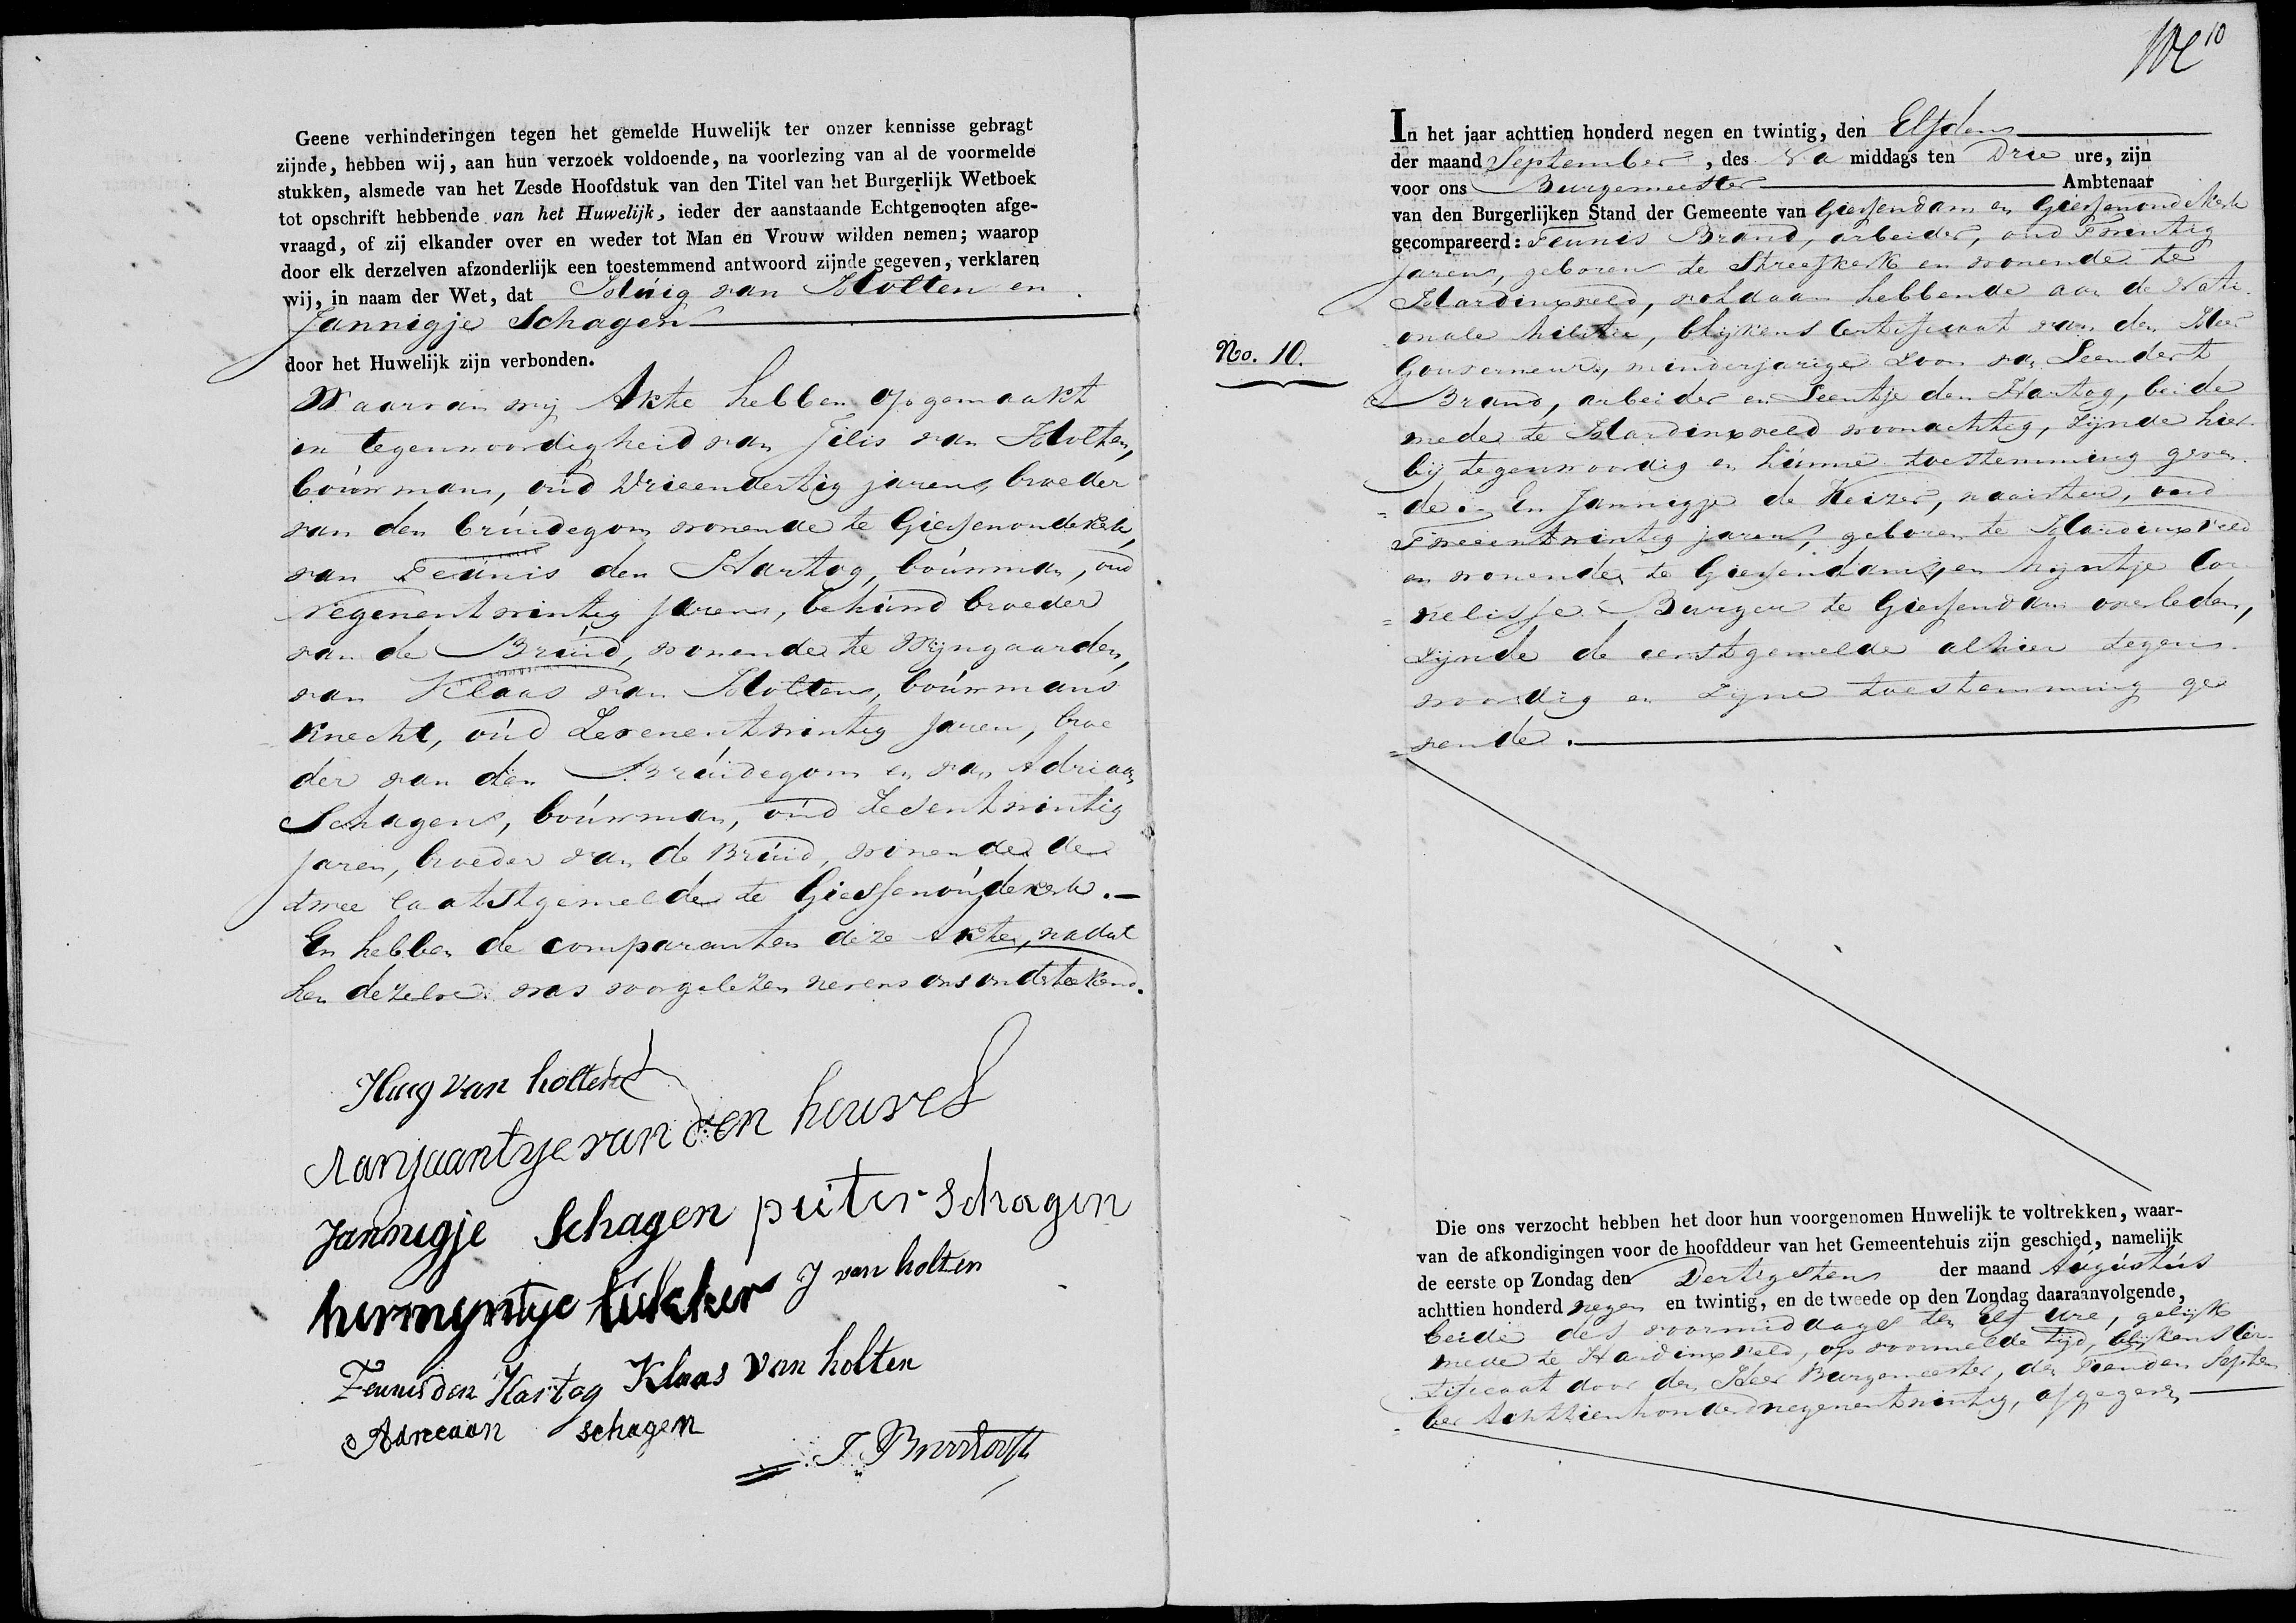 Geene verhinderingen tegen het gemelde Huwelijk ter onzer kennisse gebragt
zijnde, hebben wij, aan hun verzoek voldoende, na voorlezing van al de voormelde
stukken, alsmede van het Zesde Hoofdstuk van den Titel van het Burgerlijk Wetboek
tot opschrift hebbende van het Huwelijk, ieder der aanstaande Echtgenooten afge-
vraagd, of zij elkander over en weder tot Man en Vrouw wilden nemen; waarop
door elk derzelven afzonderlijk een toestemmend antwoord zijnde gegeven, verklaren
wij, in naam der Wet, dat Huig van Holten en
Jannigje Schagen
door het Huwelijk zijn verbonden.
Waarvan wij Akte hebben opgemaakt
in tegenwoordigheid van Jilis van Holten,
bouwman, oud Drieendertig jaren, broeder
van den bruidegom wonende te Giessenoudekerk,
van Teunis den Hartog, bouwman, oud
Negenentwintig jaren, behuwd broeder
van de Bruid, wonende te Wijngaarden,
van Klaas van Holten, bouwmans
knecht, oud Zevenentwintig jaren, broe
der van den Bruidegom en van Adriaan
Schagen, bouwman, oud Zesentwintig
jaren, broeder van de Bruid, wonende de
twee laatstgemelde te Giessenoudekerk.
En hebben de comparanten deze Akte, nadat
hen dezelve was voorgelezen nevens ons onderteekend.
Huig van holten
Aarjaantye van den heuvel
Jannigje Schagen pieter schagen
hermyntye lukker J van holten
Teunis den Hartog Klaas van holten
Adreaan schagen
10
In het jaar achttien honderd negen en twintig, den Elfden
der maand September, des Na middags ten Drie ure, zijn
voor ons Burgemeester Ambtenaar
van den Burgerlijken Stand der Gemeente van Giessendam en Giessenoudekerk
gecompareerd: Teunis Brand, arbeider, oud Twintig
jaren, geboren te Streefkerk en wonende te
Hardinxveld, voldaan hebbende aan de Nati
onale Militie, blijkens Certificaat van den Heer
No. 10.
Gouverneur, minderjarige Zoon van Leendert
Brand, arbeider en Leentje den Hartog, beide
mede te Hardinxveld woonachtig, zijnde hier
bij tegenwoordig en hunne toestemming geven
de; En Jannigje de Keizer, naaister, oud
Tweeentwintig jaren, geboren te Hardinxveld
en wonende te Giessendam, en Mijntje Cor
nelisse Burger te Giessendam overleden,
zijnde de eerstgemelde alhier tegen
woordig en zijne toestemming ge
vende.
Die ons verzocht hebben het door hun voorgenomen Hnwelijk te voltrekken, waar-
van de afkondigingen voor de hoofddeur van het Gemeentehuis zijn geschied, namelijk
de eerste op Zondag den Dertigsten der maand Augustus
achttien honderd negen en twintig, en de tweede op den Zondag daaraanvolgende,
beide des voormiddags ten Elf ure, gelijk
mede te Hardinxveld, op voormelde tijd, blijkens Cer
tificaat door den Heer Burgemeester, den Tienden Septem
ber Achttienhonderdnegenentwintig, afgegeven